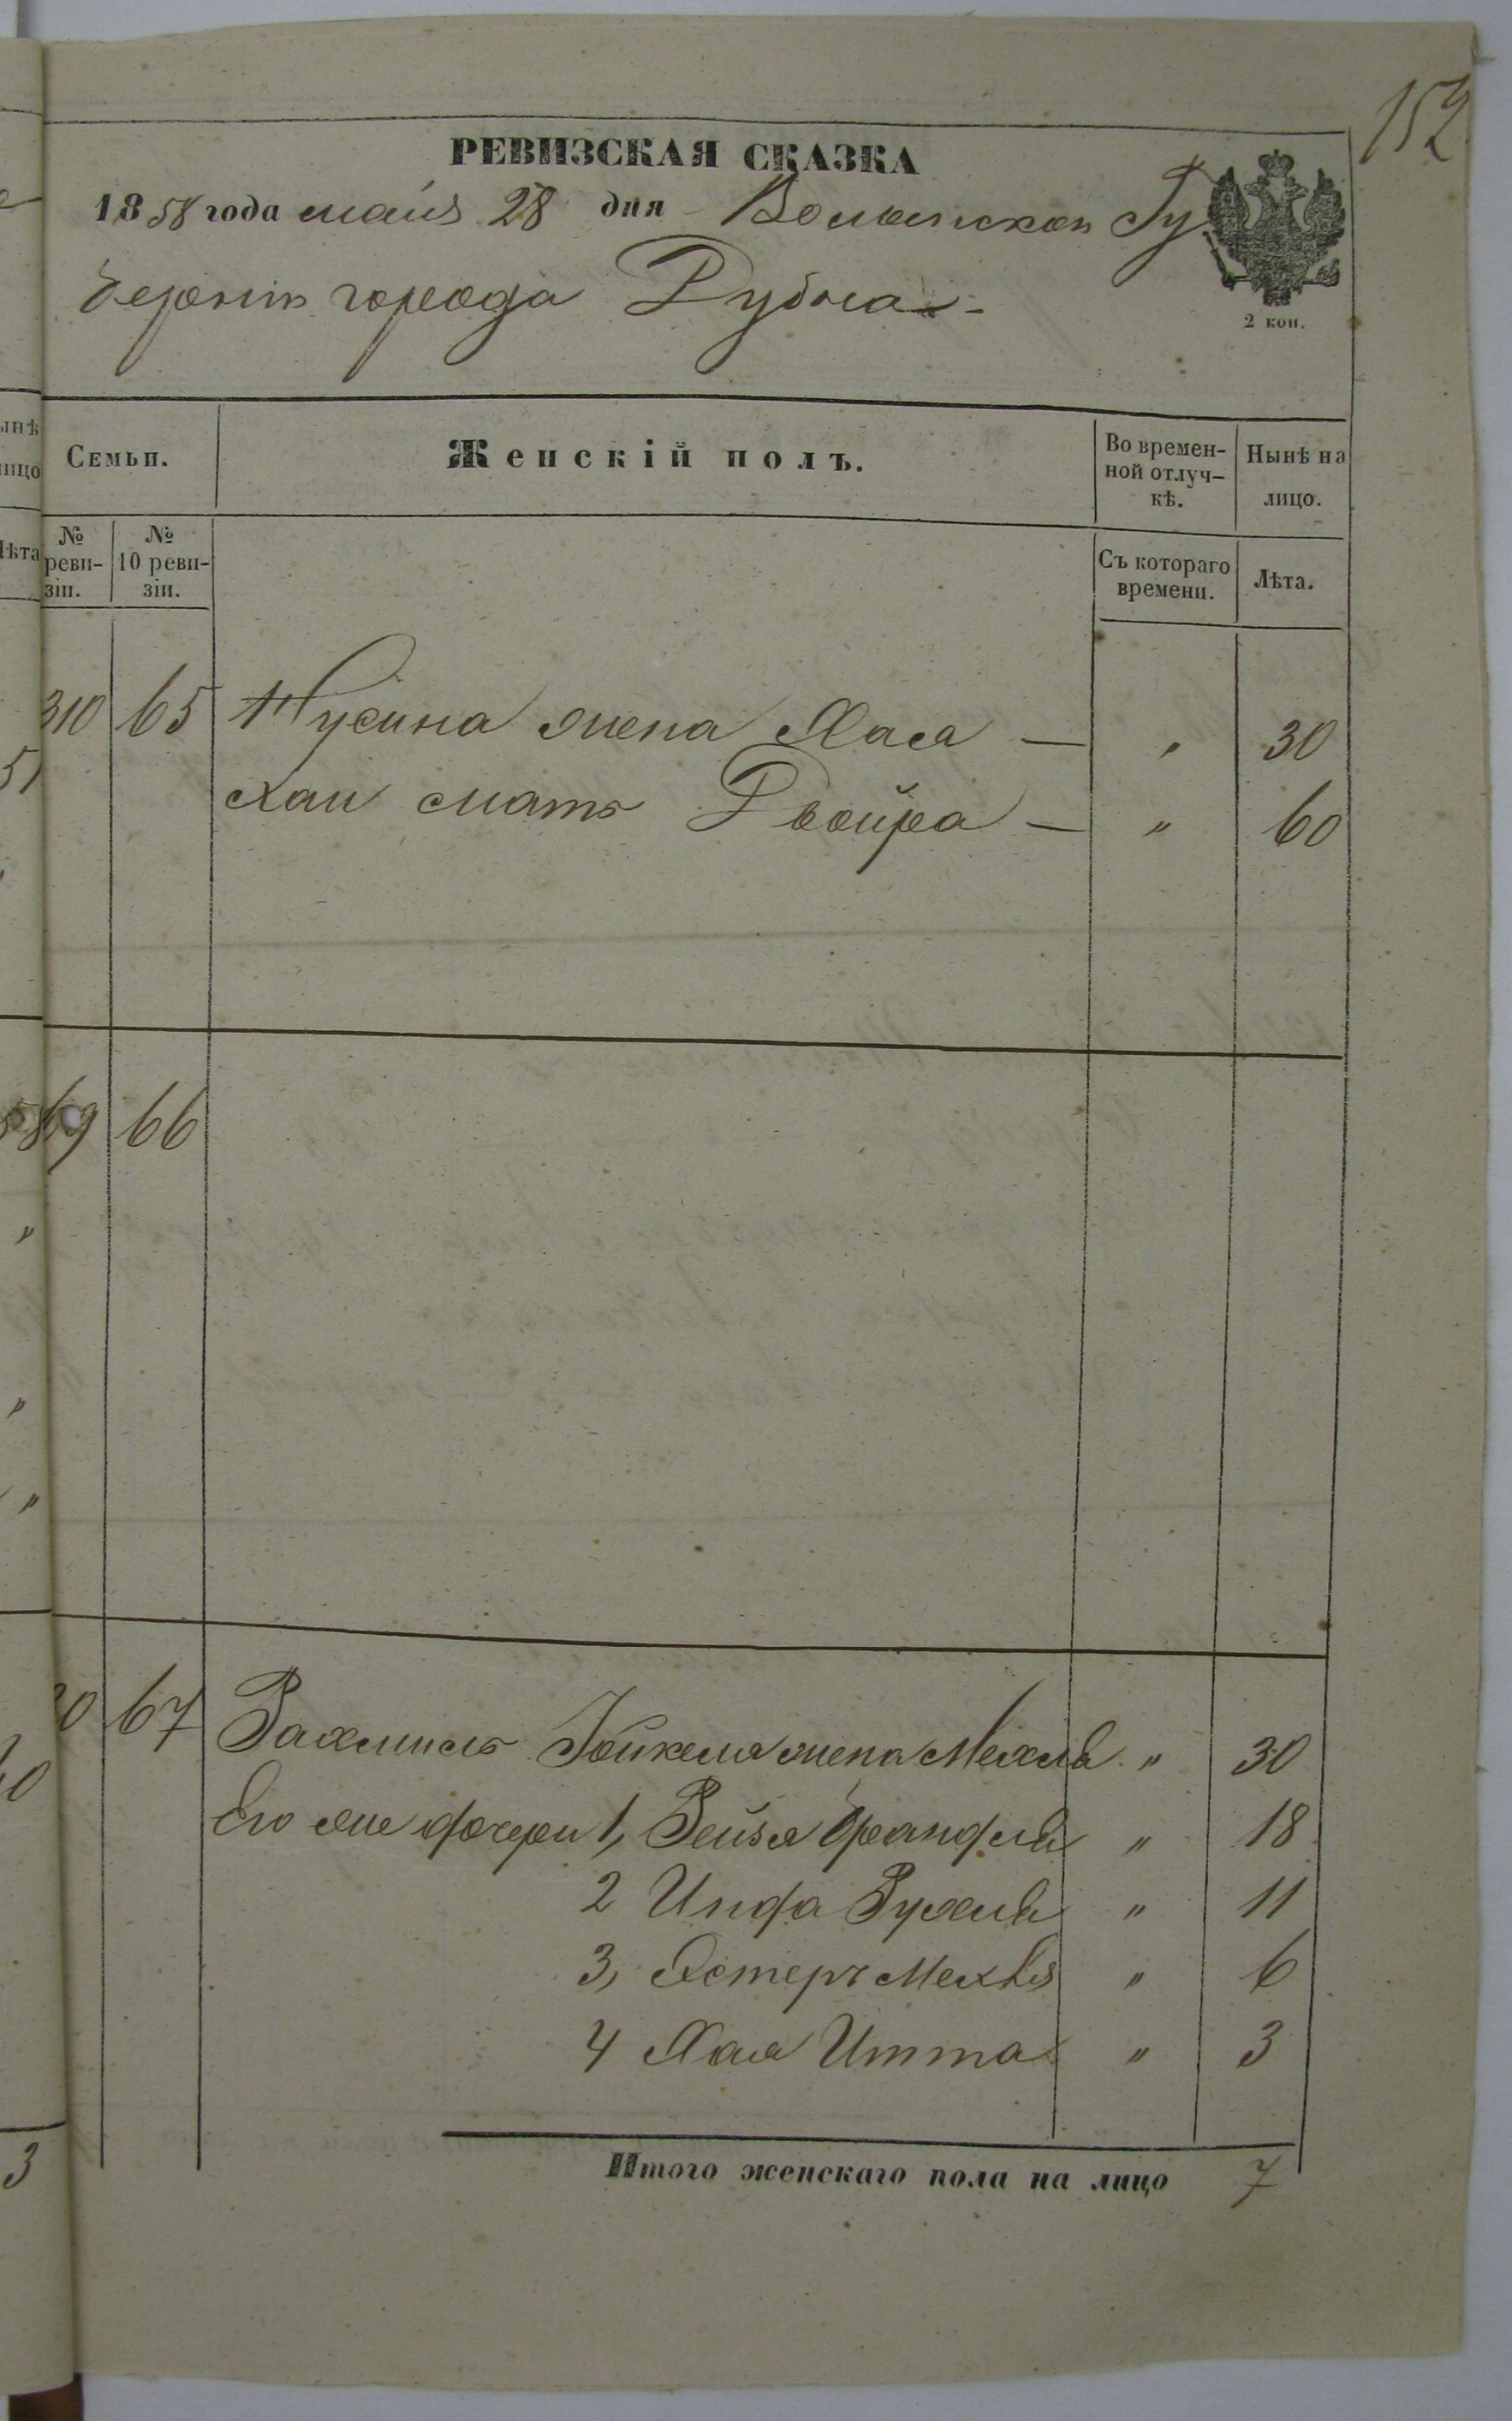 152
РЕВИЗСКАЯ СКАЗКА
1858 года маія 28 дня Волынской Гу
берніи города Дубна
2 коп.
Семьи.
Женскій полъ.
Во времен-
ной отлуч-
кѣ.
Нынѣ на
лицо.
№
реви-
зіи.
№
10 реви-
зіи.
Съ котораго
времени.
Лѣта.
310 65 Нусина жена Хася — " 30
мать Двойра — " 60
69 66
67 жена Мехля " 30
Его же дочери 1, Рейзя Франдля " 18
2 Инда Рухля " 11
3, Эстеръ " 6
4 Хая Итта " 3
Итого женскаго пола на лицо 7